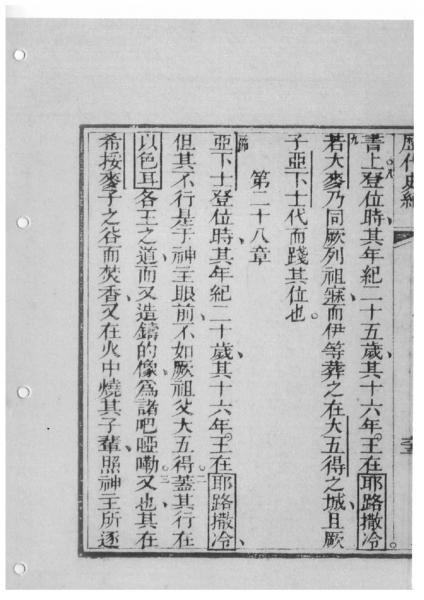 歷代史
書上登位時、其年紀二十五歲、其十六年王在耶路撒冷。
若大麥乃同厥列祖寐、而伊等葬之在大五得之城、且厥
子亞下士代而踐其位也。
第二十八章
亞下士登位時、其年紀二十歲、其十六年王在耶路撒冷、
但其不行是于神主眼前、不如厥祖父大五得。蓋其行在
以色耳各王之道、而又造鑄的像爲諸吧啞嘞。又也其在
希挼麥子之谷而焚香、又在火中燒其子輩、照神主所逐